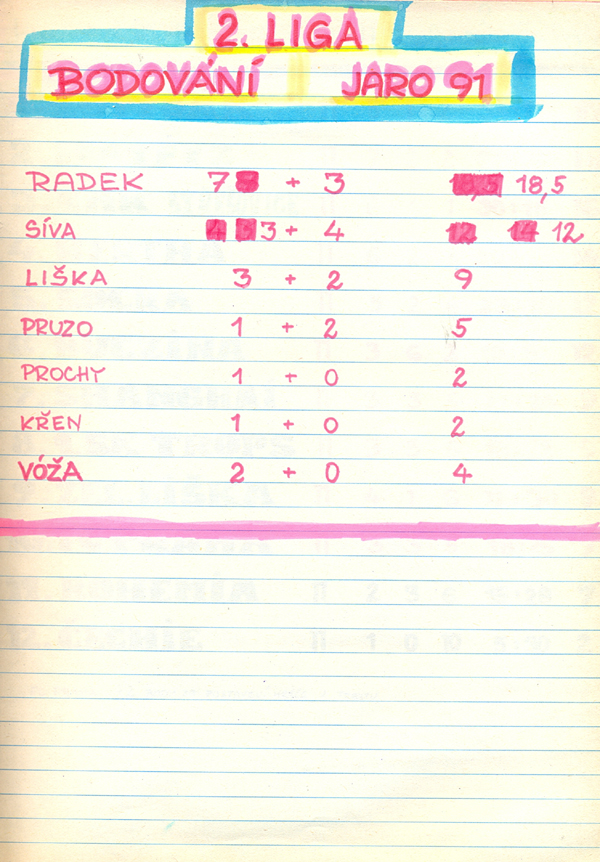 2. LIGA
BODOVÁNÍ JARO 91
RADEK 7 + 3 18,5
SÍVA 3 + 4 12 14 12
LIŠKA 3 + 2 9
PRUZO 1 + 2 5
PROCHY 1 + 0 2
KŘEN 1 + 0 2
VÓŽA 2 + 0 4